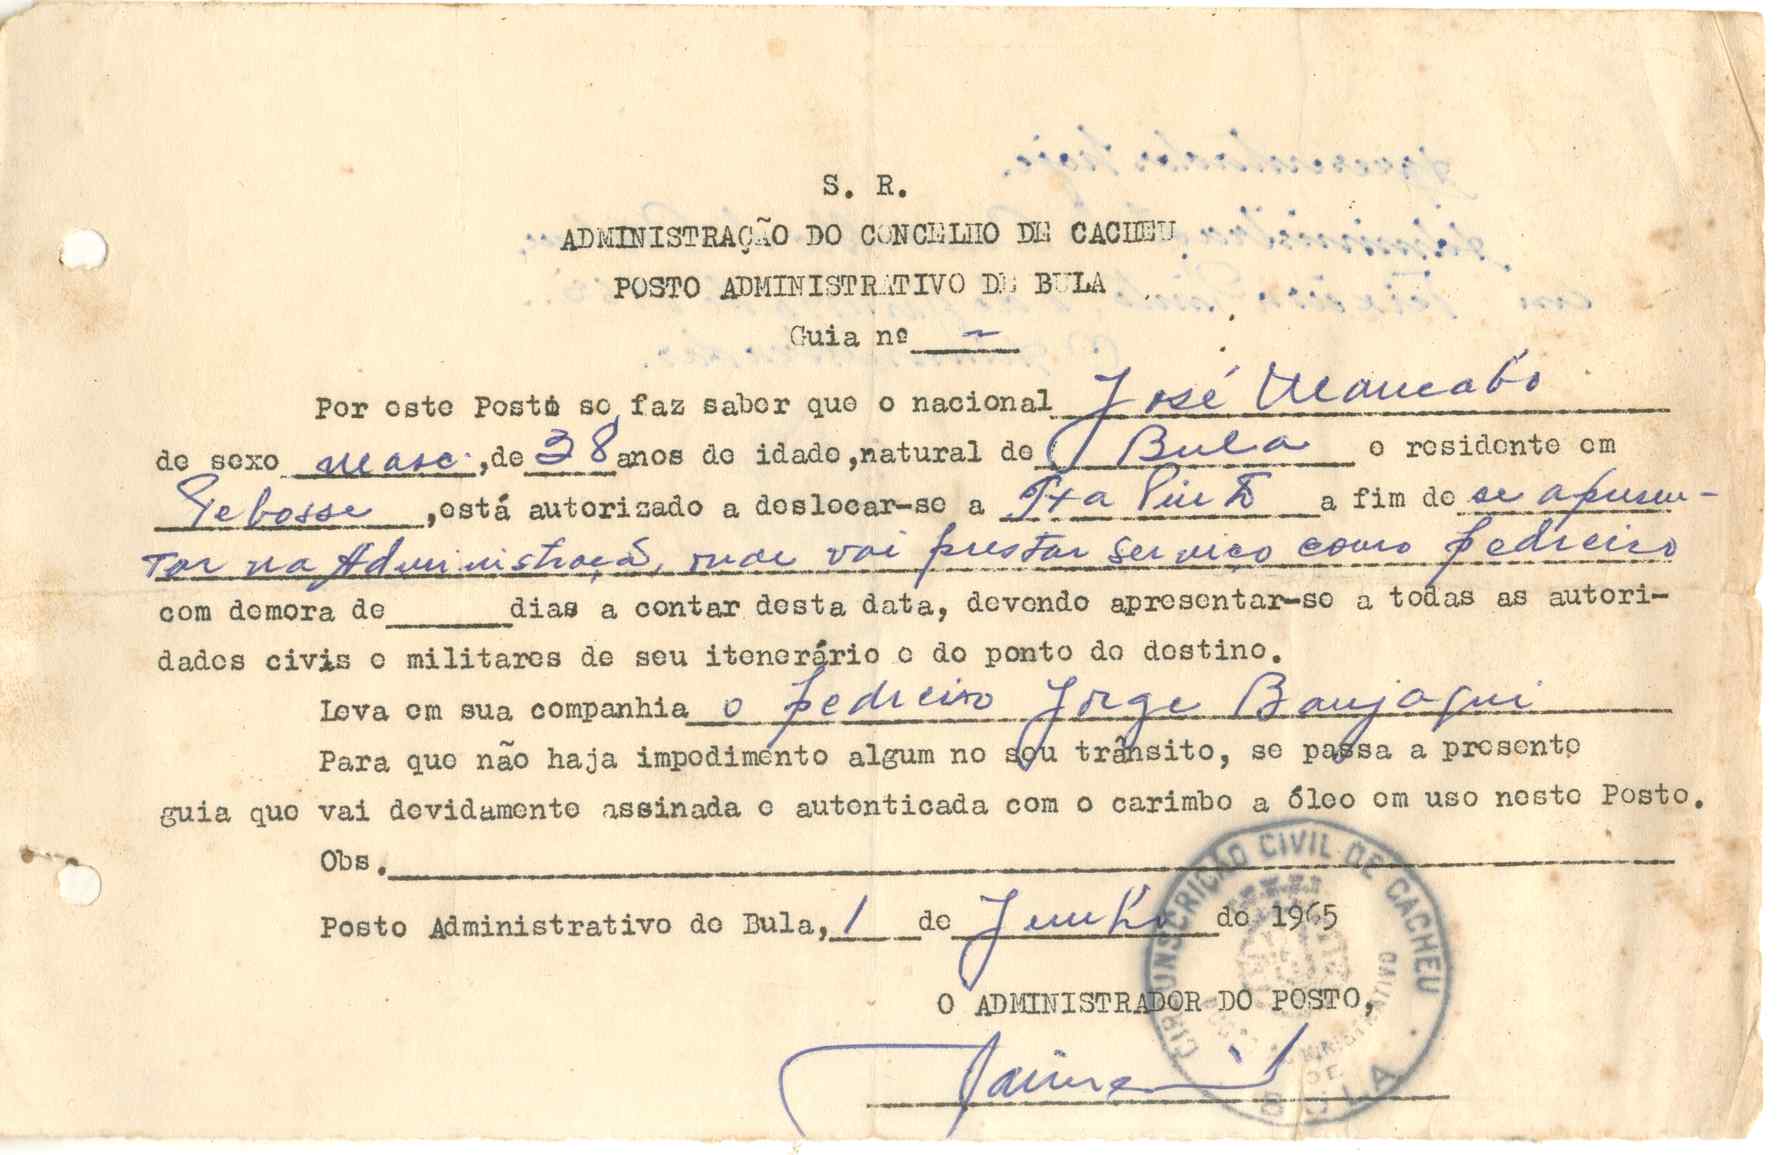 S. R.
ADMINISTRAÇÃO DO CONCELHO DE CACHEU
POSTO ADMINISTRATIVO DE BULA
Guia nº -
Por este Posto se faz saber que o nacional José Mancabo
de sexo masc. , de 38 anos de idade, natural de Bula e residente em
Pebosse , está autorizado a deslocar-se a Txa Pinto a fim de se apresen-
tar na Administração, onde vai prestar serviço como pedreiro
com demora de dias a contar desta data, devendo apresentar-se a todas as autori-
dades civis e militares de seu itenerário e do ponto de destino.
Leva em sua companhia o pedreiro Jorge Banjaqui
Para que não haja impedimento algum no seu trânsito, se passa a presente
guia que vai devidamente assinada e autenticada com o carimbo a óleo em uso neste Posto.
Obs.
Posto Administrativo de Bula, 1 de Junho de 1965
O ADMINISTRADOR DO POSTO,
CIRCUNSCRIÇÃO CIVIL DE CACHEU
POSTO ADMINISTRATIVO
DE
BULA